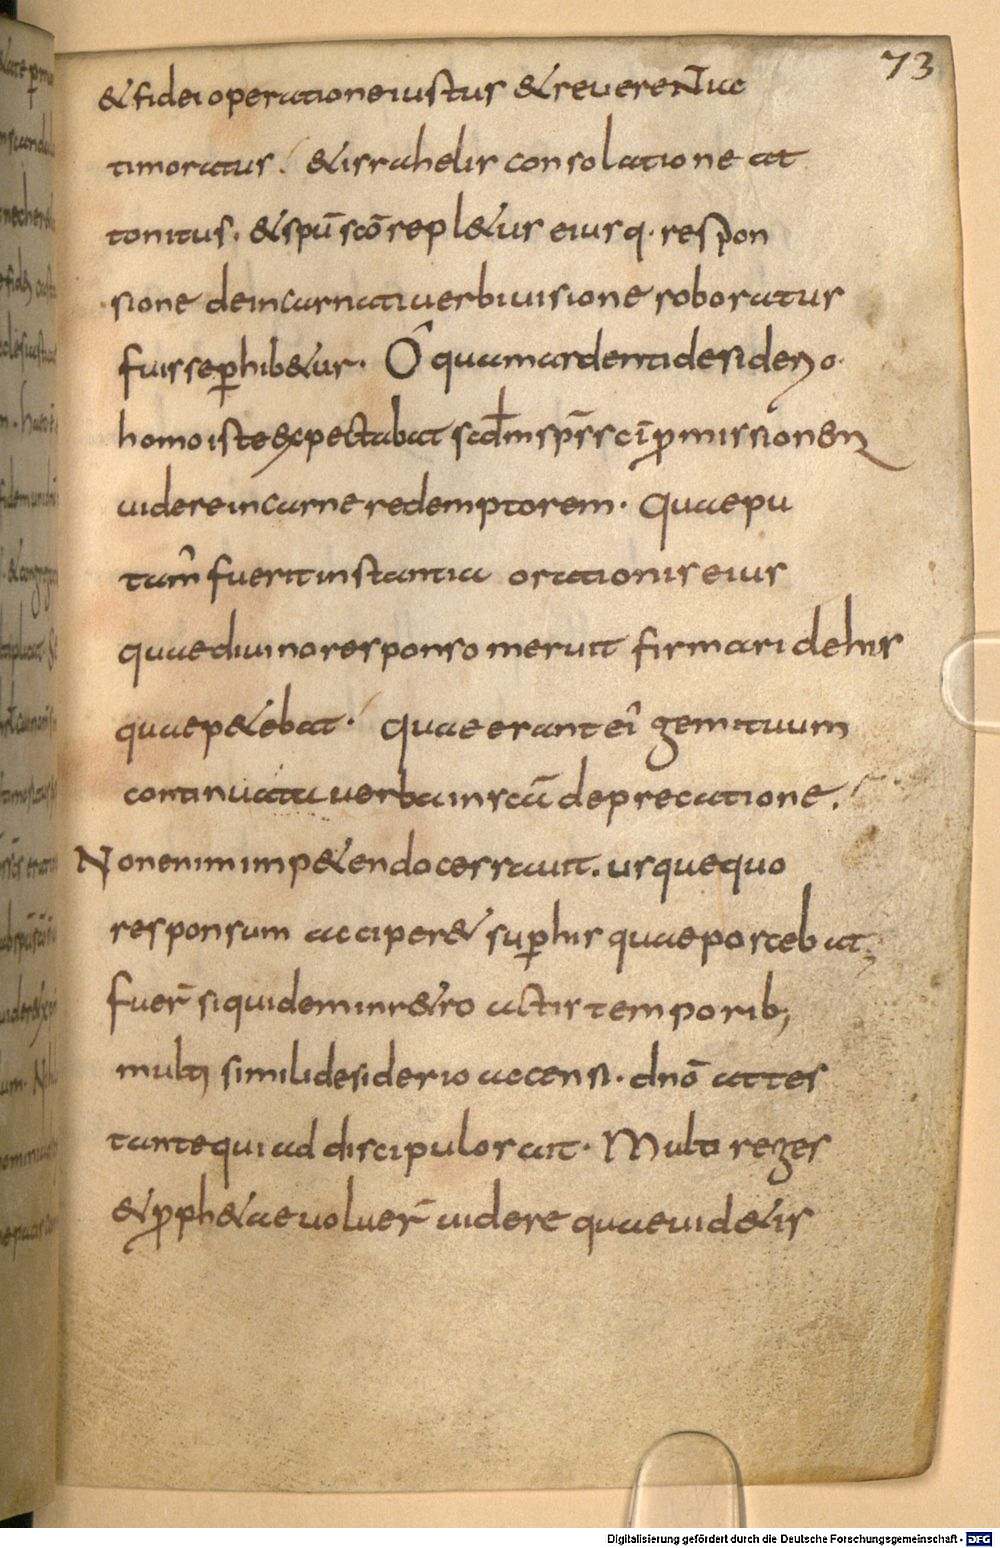 73
& fidei operatione iustus & reuerentiae
timoratus. & israhelis consolatione at
tonitus. & spū scō repl&ur eiusq. respon
sione de incarnati uerbi uisione roboratur
fuisse ꝑhib&ur. O quam ardenti desiderio.
homo iste expectabat scdm sps sci ꝓmissionem
uidere in carne redemptorem. Quae pu
tam̂ fuerit instantia orationis eius
quae diuino responso meruit firmari de his
quae p&ebat. Quae erant ei gemituum
continuata uerba in scā deprecatione.
Non enim imp&endo cerrauit. usquequo
responsum acciper& suꝑ his quae poscebat;
fuer̄ siquidem in r&ro actis temporib;
multi similidesiderio accensi. dnō attes
tante qui ad discipulos ait. Multi reges
& ꝓph&ae uoluer̄ uidere quae uid&is
Digitalisierung gefördert durch die Deutsche Forschungsgemeinschaft - DFG